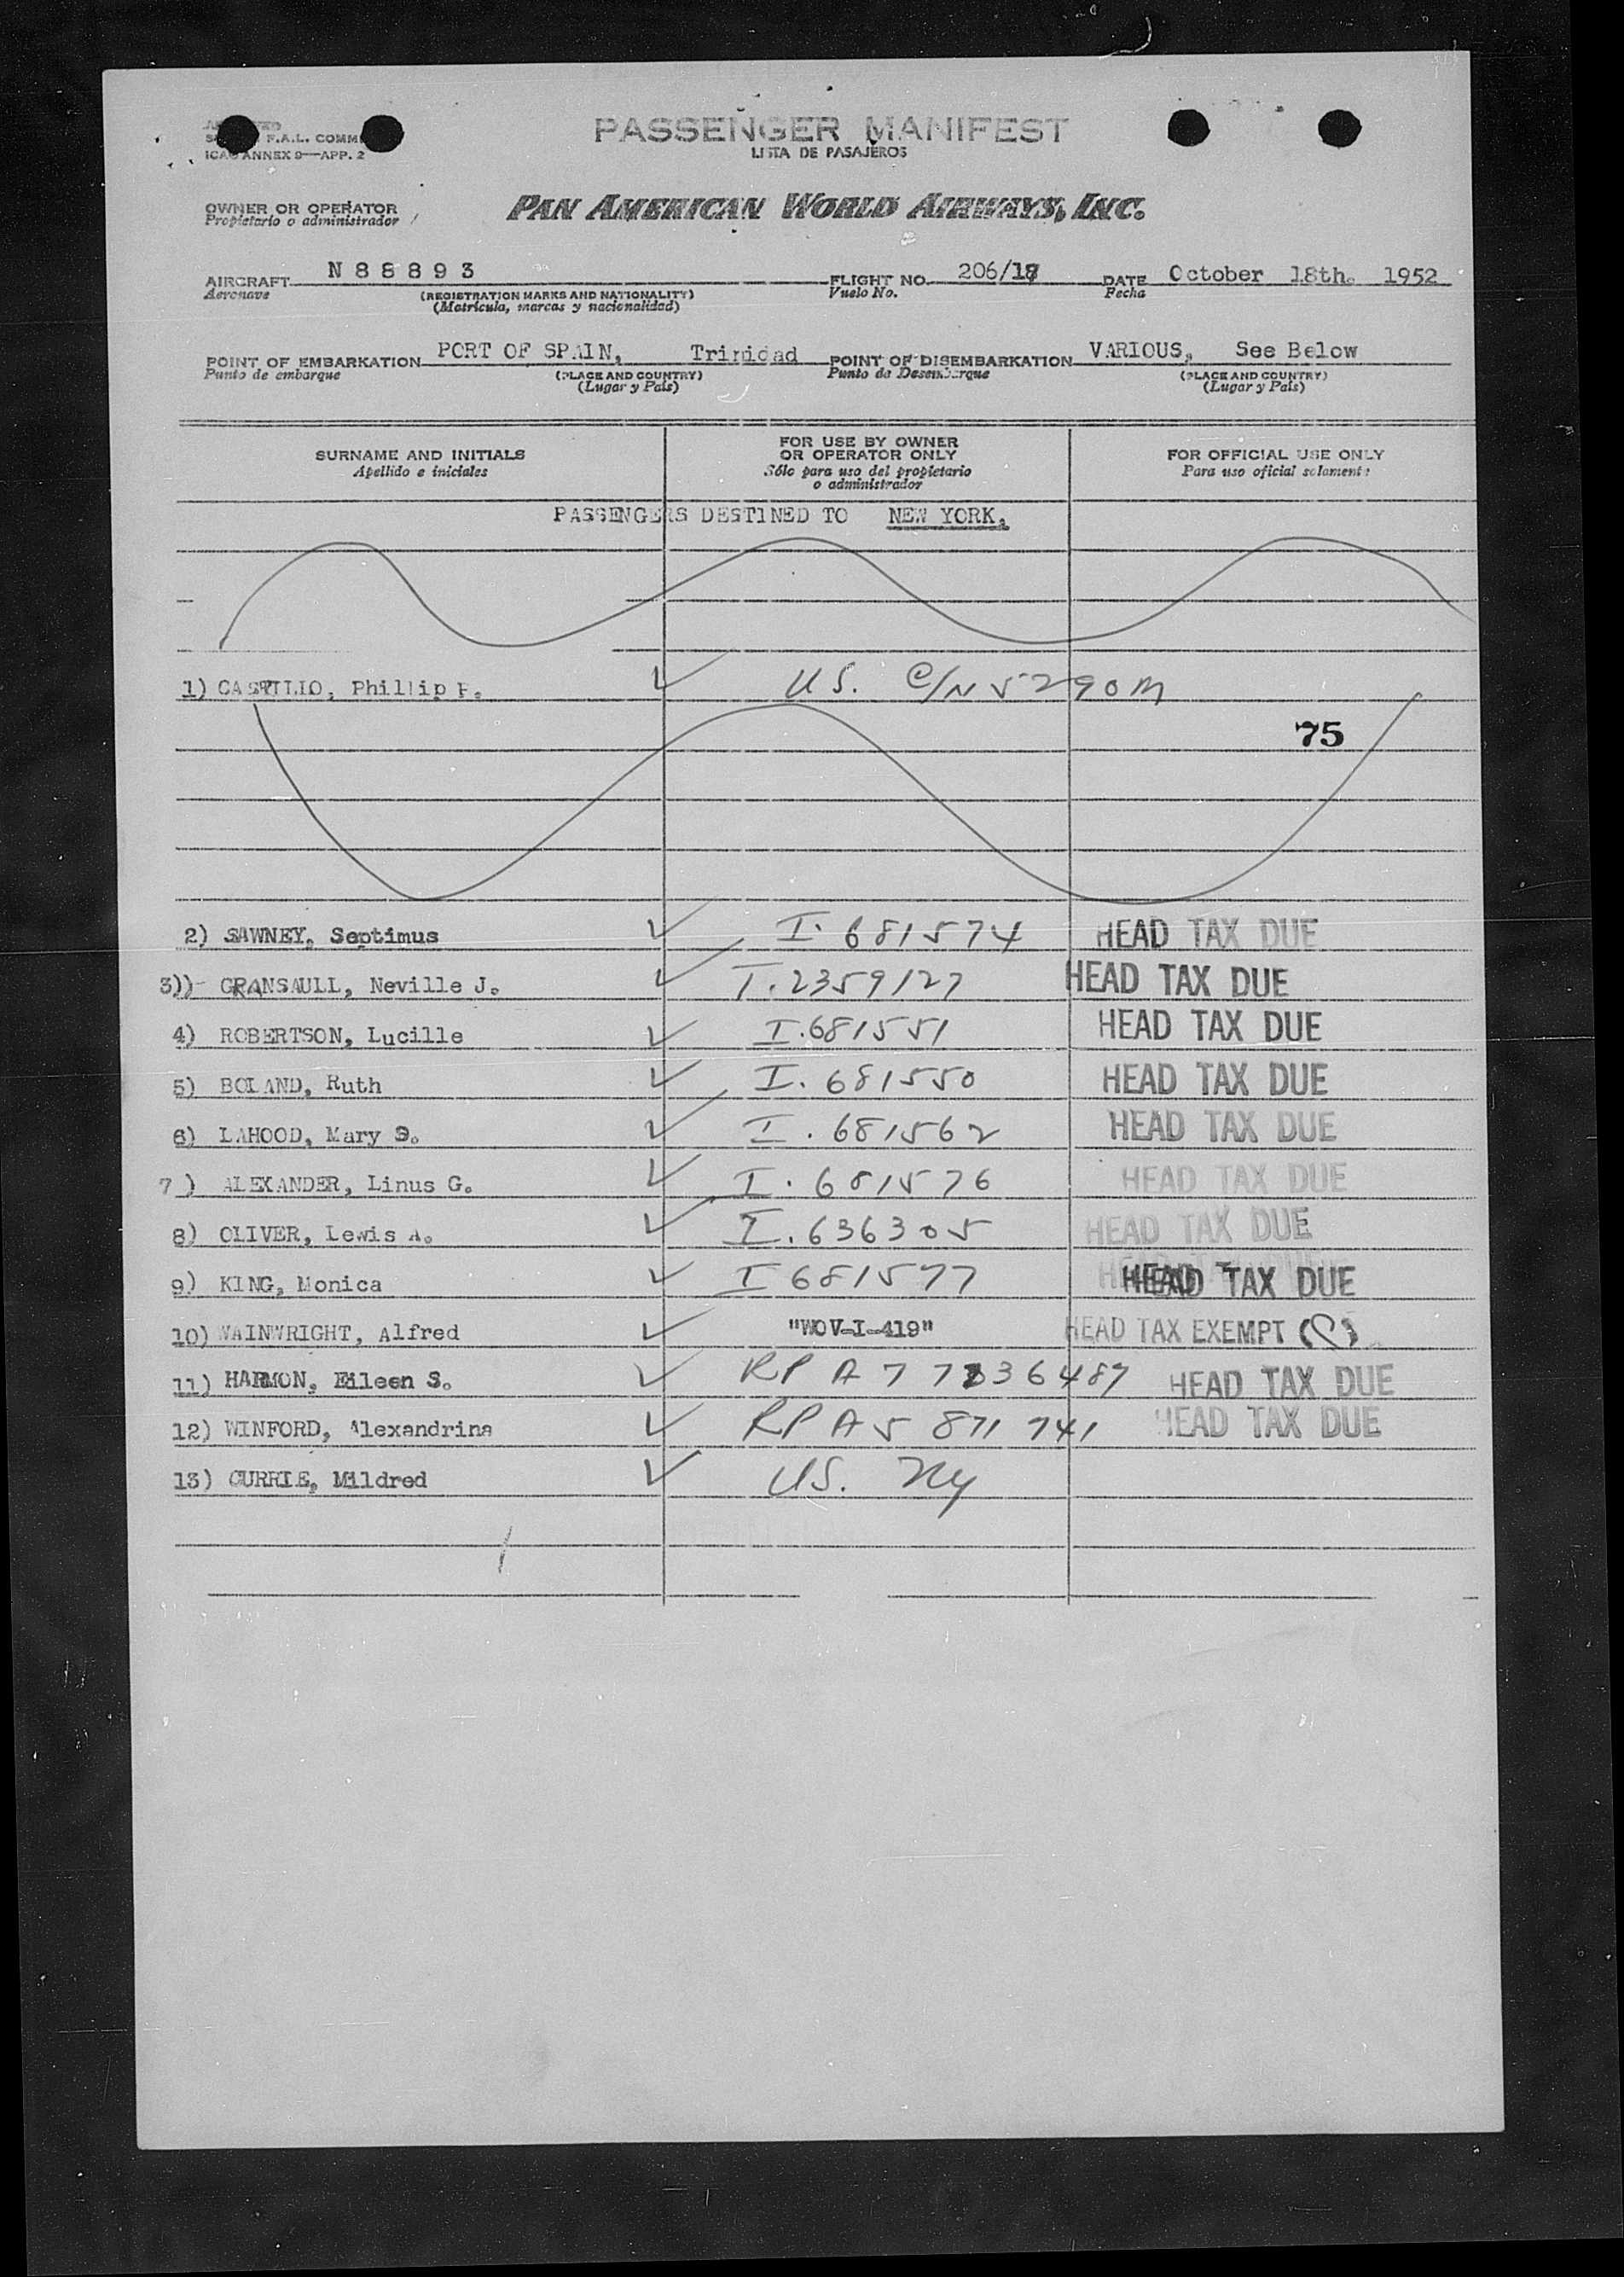 F.A.L. COMM
ICAO ANNEX 9—APP. 2
PASSENGER MANIFEST
LISTA DE PASAJEROS
OWNER OR OPERATOR
Propietario o administrador
PAN AMERICAN WORLD AIRWAYS, INC.
AIRCRAFT N88893 FLIGHT NO. 206/18 DATE October 18th. 1952
Aeronave (REGISTRATION MARKS AND NATIONALITY) Vuelo No. Fecha
(Matrícula, marcas y nacionalidad)
POINT OF EMBARKATION PORT OF SPAIN, Trinidad POINT OF DISEMBARKATION VARIOUS, See Below
Punto de embarque (PLACE AND COUNTRY) Punto de Desembarque (PLACE AND COUNTRY)
(Lugar y País) (Lugar y País)
SURNAME AND INITIALS FOR USE BY OWNER OR OPERATOR ONLY FOR OFFICIAL USE ONLY
Apellido e iniciales Sólo para uso del propietario o administrador Para uso oficial solamente
PASSENGERS DESTINED TO NEW YORK.
1) CASTILIO, Phillip P. U.S. C/N 5290M
75
2) SAWNEY, Septimus I. 681574 HEAD TAX DUE
3))- GRANSAULL, Neville J. I. 2359127 HEAD TAX DUE
4) ROBERTSON, Lucille I. 681551 HEAD TAX DUE
5) BOLAND, Ruth I. 681550 HEAD TAX DUE
6) LAHOOD, Mary S. I. 681562 HEAD TAX DUE
7) ALEXANDER, Linus G. I. 681576 HEAD TAX DUE
8) OLIVER, Lewis A. I. 636305 HEAD TAX DUE
9) KING, Monica I 681577 HEAD TAX DUE
10) WAINWRIGHT, Alfred "WOV-I-419" HEAD TAX EXEMPT
11) HARMON, Eileen S. RP A7 736487 HEAD TAX DUE
12) WINFORD, Alexandrina RP A5 871 741 HEAD TAX DUE
13) CURRIE, Mildred US. Ny